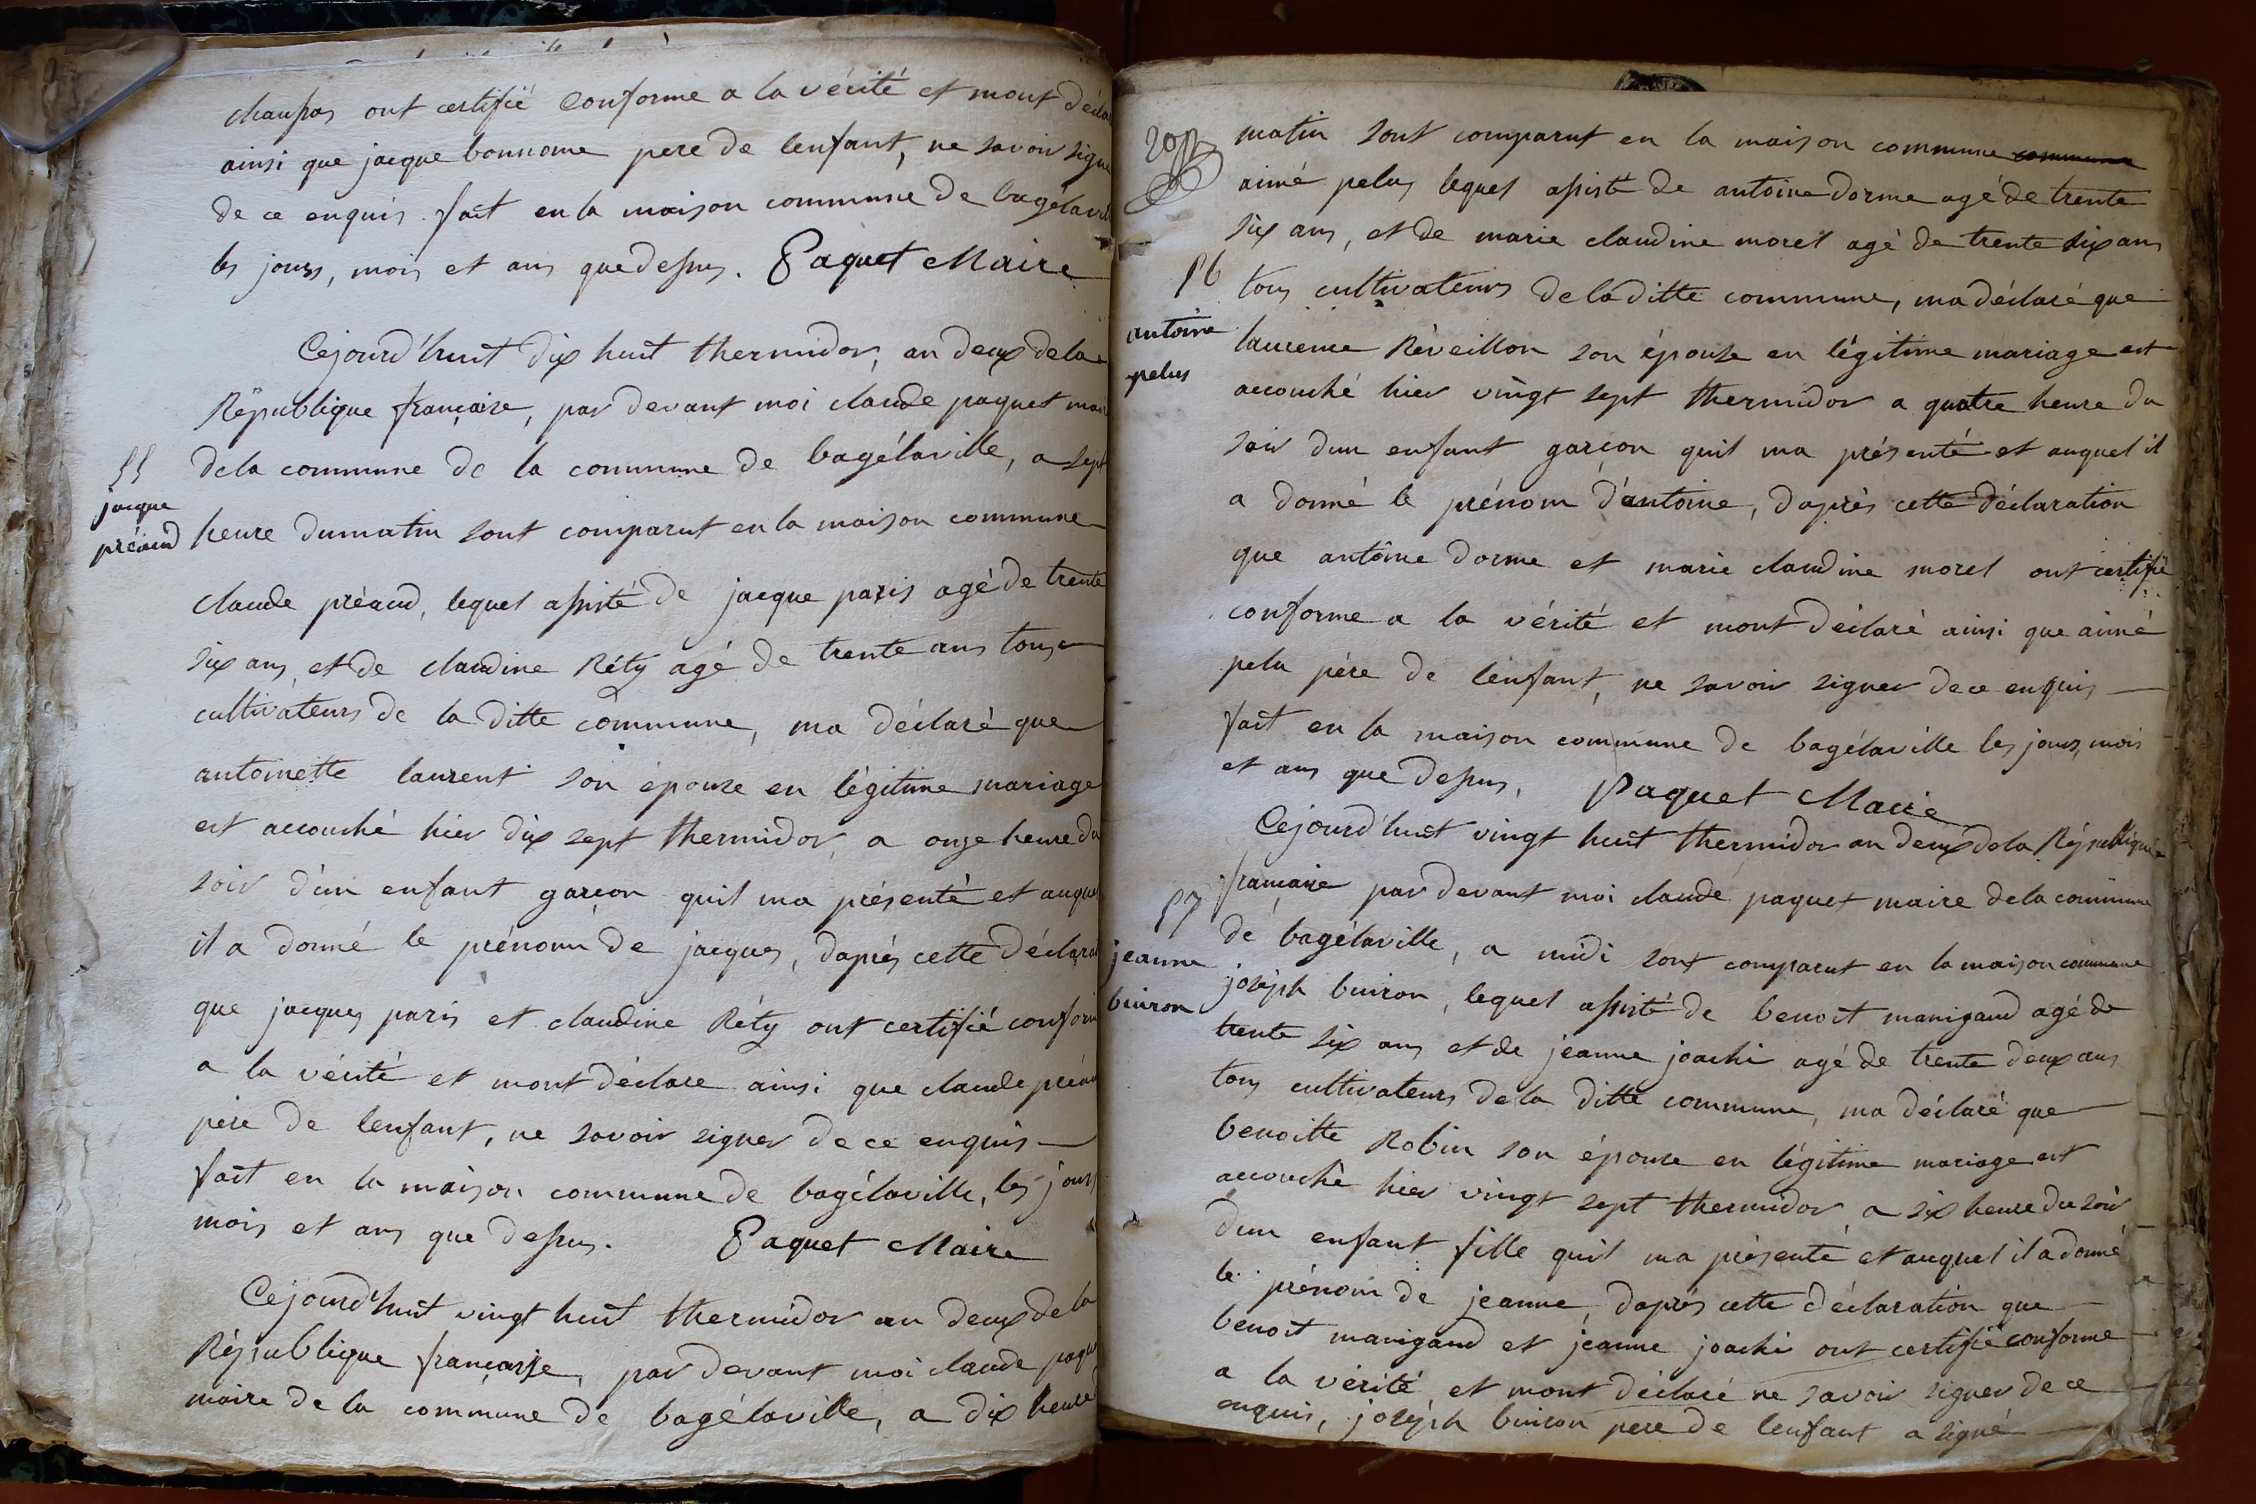 chanpas ont certifié conforme a la vérité et mont décla
ainsi que jacque bonnome pere de lenfant, ne savoir signe
de ce enquis. fait en la maison commune de bagélavil
les jours, mois et ans que dessus. Paquet Maire
Cejourd'huit dix huit thermidor, an deux de la
République françaire, par devant moi claude paquet mai
55
jacque
préaud
dela commune de la commune de bagélaville, a sept
heure dumatin sont comparut en la maison commune
claude préaud, lequel assisté de jacque paris agé de trente
six ans, et de claudine Réty agé de trente ans tous
cultivateurs de la ditte commune, ma déclaré que
antoinette laurent son épouse en légitime mariage
est accouché hier dix sept thermidor, a onze heure du
soir d'un enfant garçon quil ma présenté et auque
il a donné le prénom de jacques, daprés cette déclara
que jacques paris et claudine Réty ont certifié conform
a la vérité et mont déclare ainsi que claude préau
pére de lenfant, ne savoir signer de ce enquis
fait en la maison commune de bagélaville, les jours
mois et ans que dessus. Paquet Maire
Cejourd'huit vingt huit thermidor an deux de la
République françaisse, par devant moi claude paque
maire de la commune de bagélaville, a dix heure
matin sont comparut en la maison commune commune
aimé pelus lequel assisté de antoine dorme agé de trente
six ans, et de marie claudine morel agé de trente six ans
56
antoine
pelus
tous cultivateurs de la ditte commune, ma déclaré que
laurence Réveillon son épouse en légitime mariage est
accouché hier vingt sept thermidor a quatre heure du
soir dun enfant garçon quil ma présenté et auquel il
a donné le prénom d'antoine, daprès cette déclaration
que antoine dorme et marie claudine morel ont certifié
conforme a la vérité et mont déclaré ainsi que aimé
pelu pére de lenfant, ne savoir signer de ce enquis
fait en la maison commune de bagélaville les jours, mois
et ans que dessus. Paquet Maire
Cejourd'huit vingt huit thermidor an deux dela République
57
jeanne
buiron
françaire par devant moi claude paquet maire dela commune
de bagélaville, a midi sont comparut en la maison commune
joséph buiron, lequel assisté de benoit manigaud agé de
trente six ans et de jeanne joachi agé de trente deux ans
tous cultivateurs dela ditte commune, ma déclaré que
benoitte Robin son épouse en légitime mariage est
accouché hier vingt sept thermidor a six heure du soir
dun enfant fille quil ma présenté et auquel il a donné
le prénom de jeanne, daprés cette déclaration que
benoit manigaud et jeanne joachi ont certifié conforme
a la vérité et mont déclaré ne savoir signer de ce
enquis, joséph buiron pere de lenfant a signé